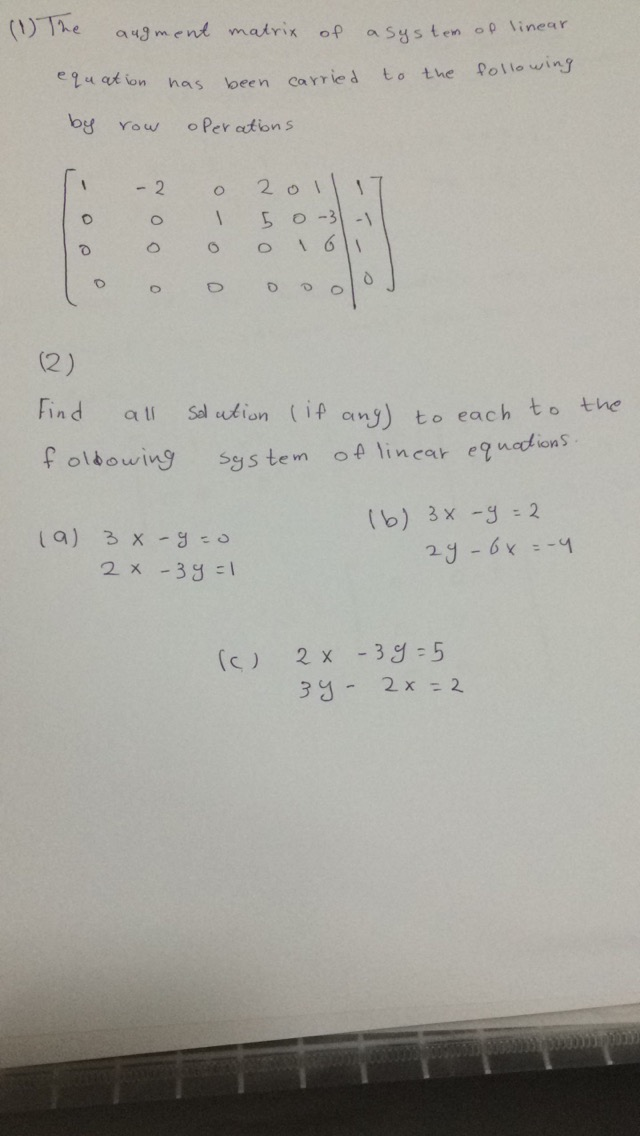 (1) The augment matrix of a system of linear
equation has been carried to the following
by row operations
1 -2 0 2 0 1 | 1
0 0 1 5 0 -3 | -1
0 0 0 0 1 6 | 1
0 0 0 0 0 0 | 0
(2)
Find all solution (if any) to each to the
folbowing system of linear equations.
(a) 3x - y = 0
2x - 3y = 1
(b) 3x - y = 2
2y - 6x = -4
(c) 2x - 3y = 5
3y - 2x = 2